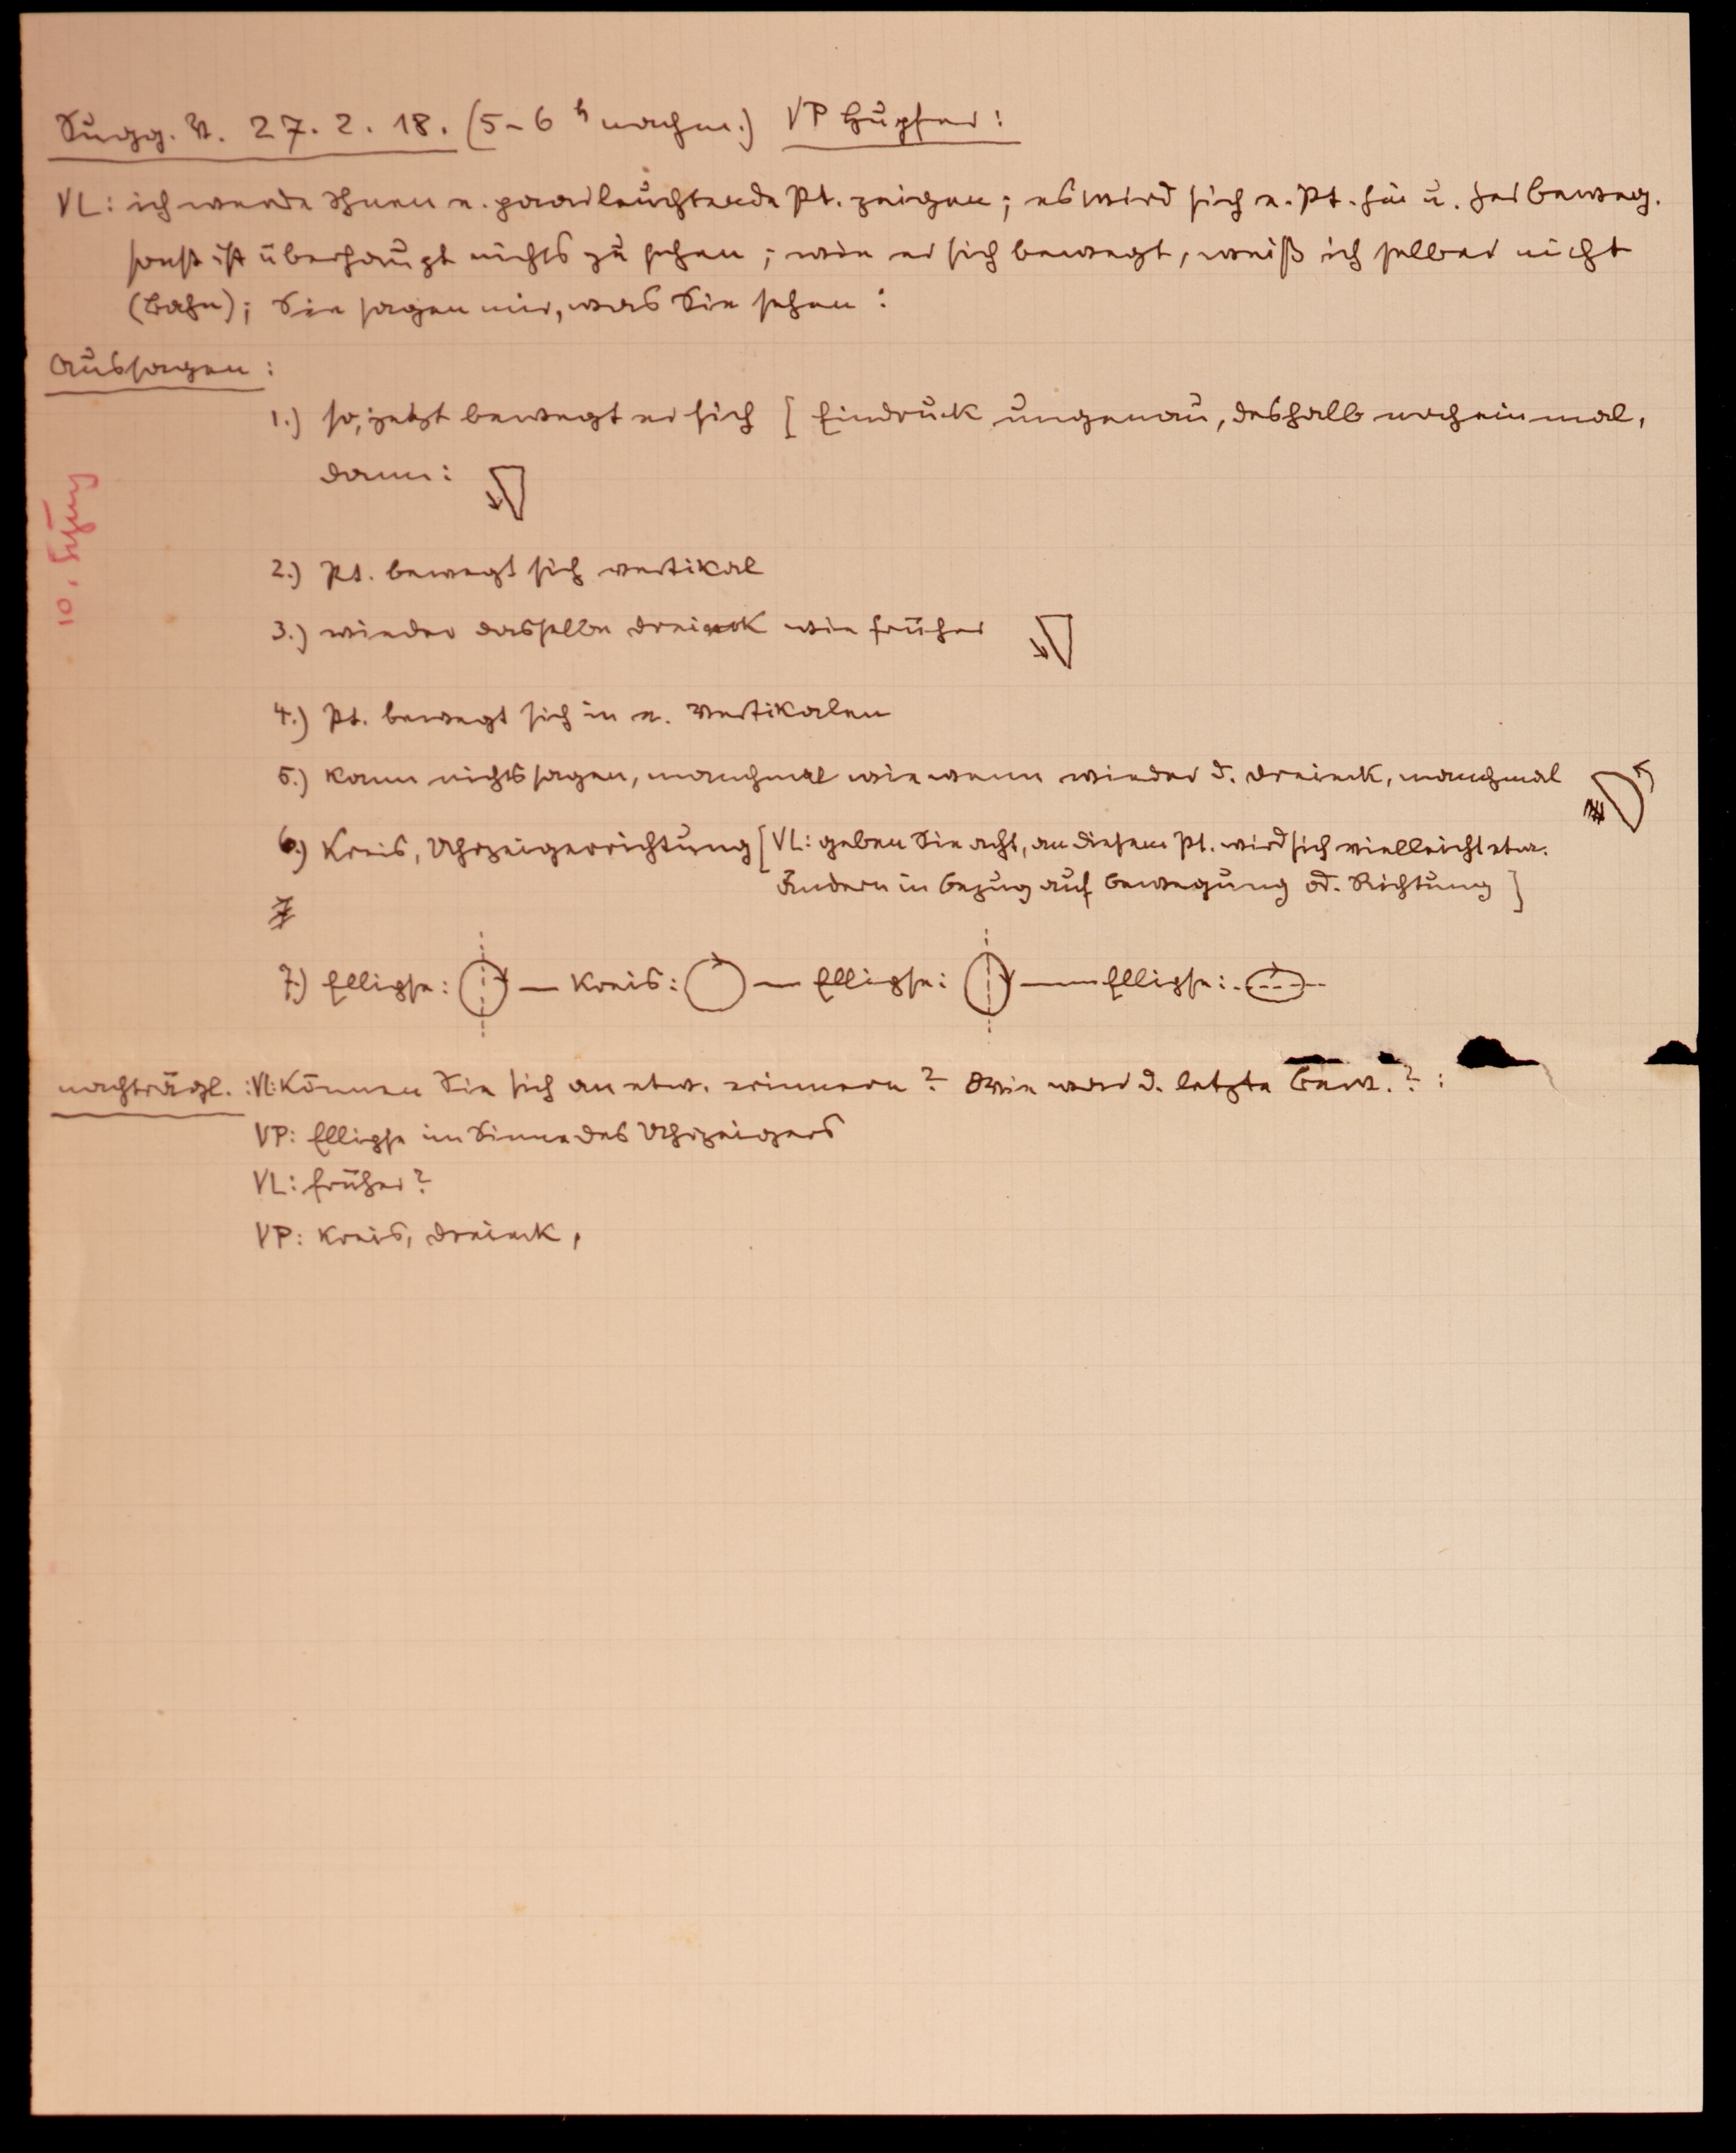 Sugg. V. 27. 2. 18. (5-6 h nachm.) VP Hupfer:
VL: ich werde Ihnen e. paar leuchtende Pt. zeigen; es wird sich e. Pt. hin u. her beweg.
sonst ist überhaupt nichts zu sehen; wie er sich bewegt, weiß ich selber nicht
(Bahn); Sie sagen mir, was Sie sehen:
Aussagen:
1.) so, jetzt bewegt er sich [Eindruck ungenau, deshalb noch einmal,
dann:
2.) Pt. bewegt sich vertikal
3.) wieder dasselbe Dreieck wie früher
4.) Pt. bewegt sich in e. Vertikalen
5.) kann nichts sagen, manchmal wie wenn wieder d. Dreieck, manchmal
6.) Kreis, Uhrzeigerrichtung [VL: geben Sie acht, an diesem Pt. wird sich vielleicht etw.
ändern in Bezug auf Bewegung od. Richtung]
7
7.) Ellipse: — Kreis: — Ellipse: — Ellipse:
nachträgl.: VL: Können Sie sich an etw. erinnern? Wie war d. letzte Bew.?:
VP: Ellipse im Sinne des Uhrzeigers
VL: früher?
VP: Kreis, Dreieck,
10.